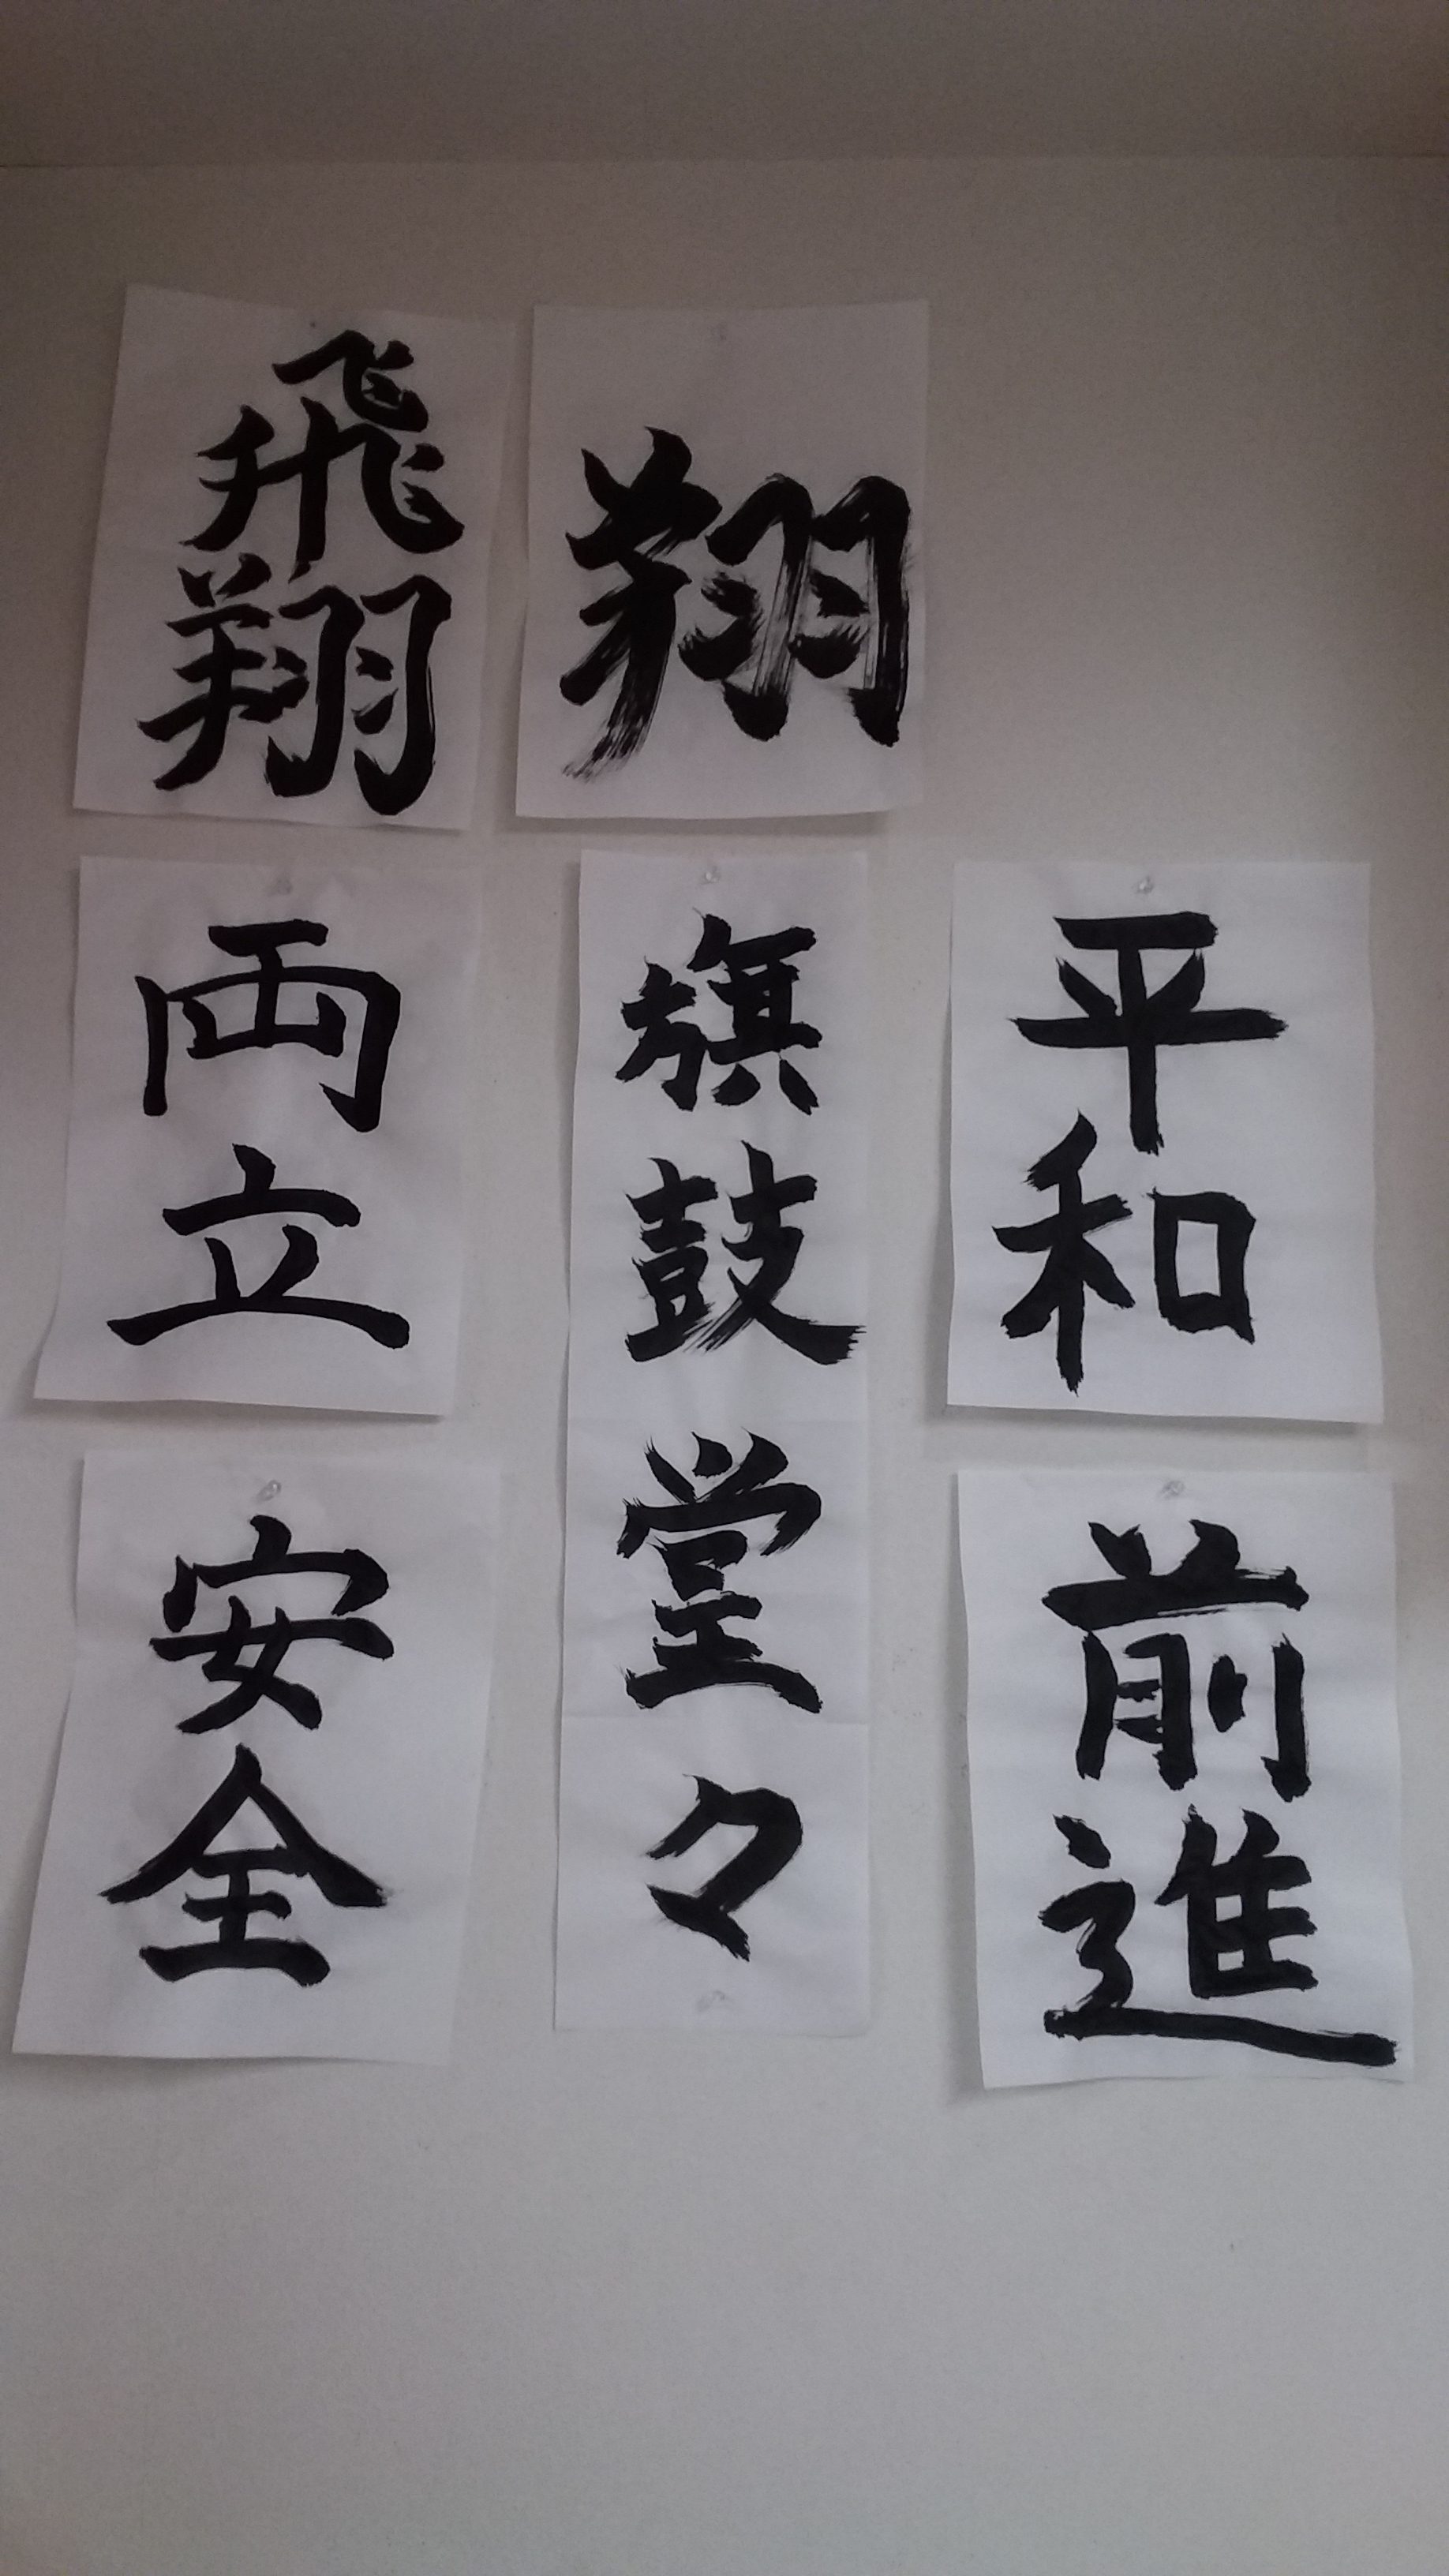 飛翔
翔
平和
旗鼓堂々
両立
前進
安全